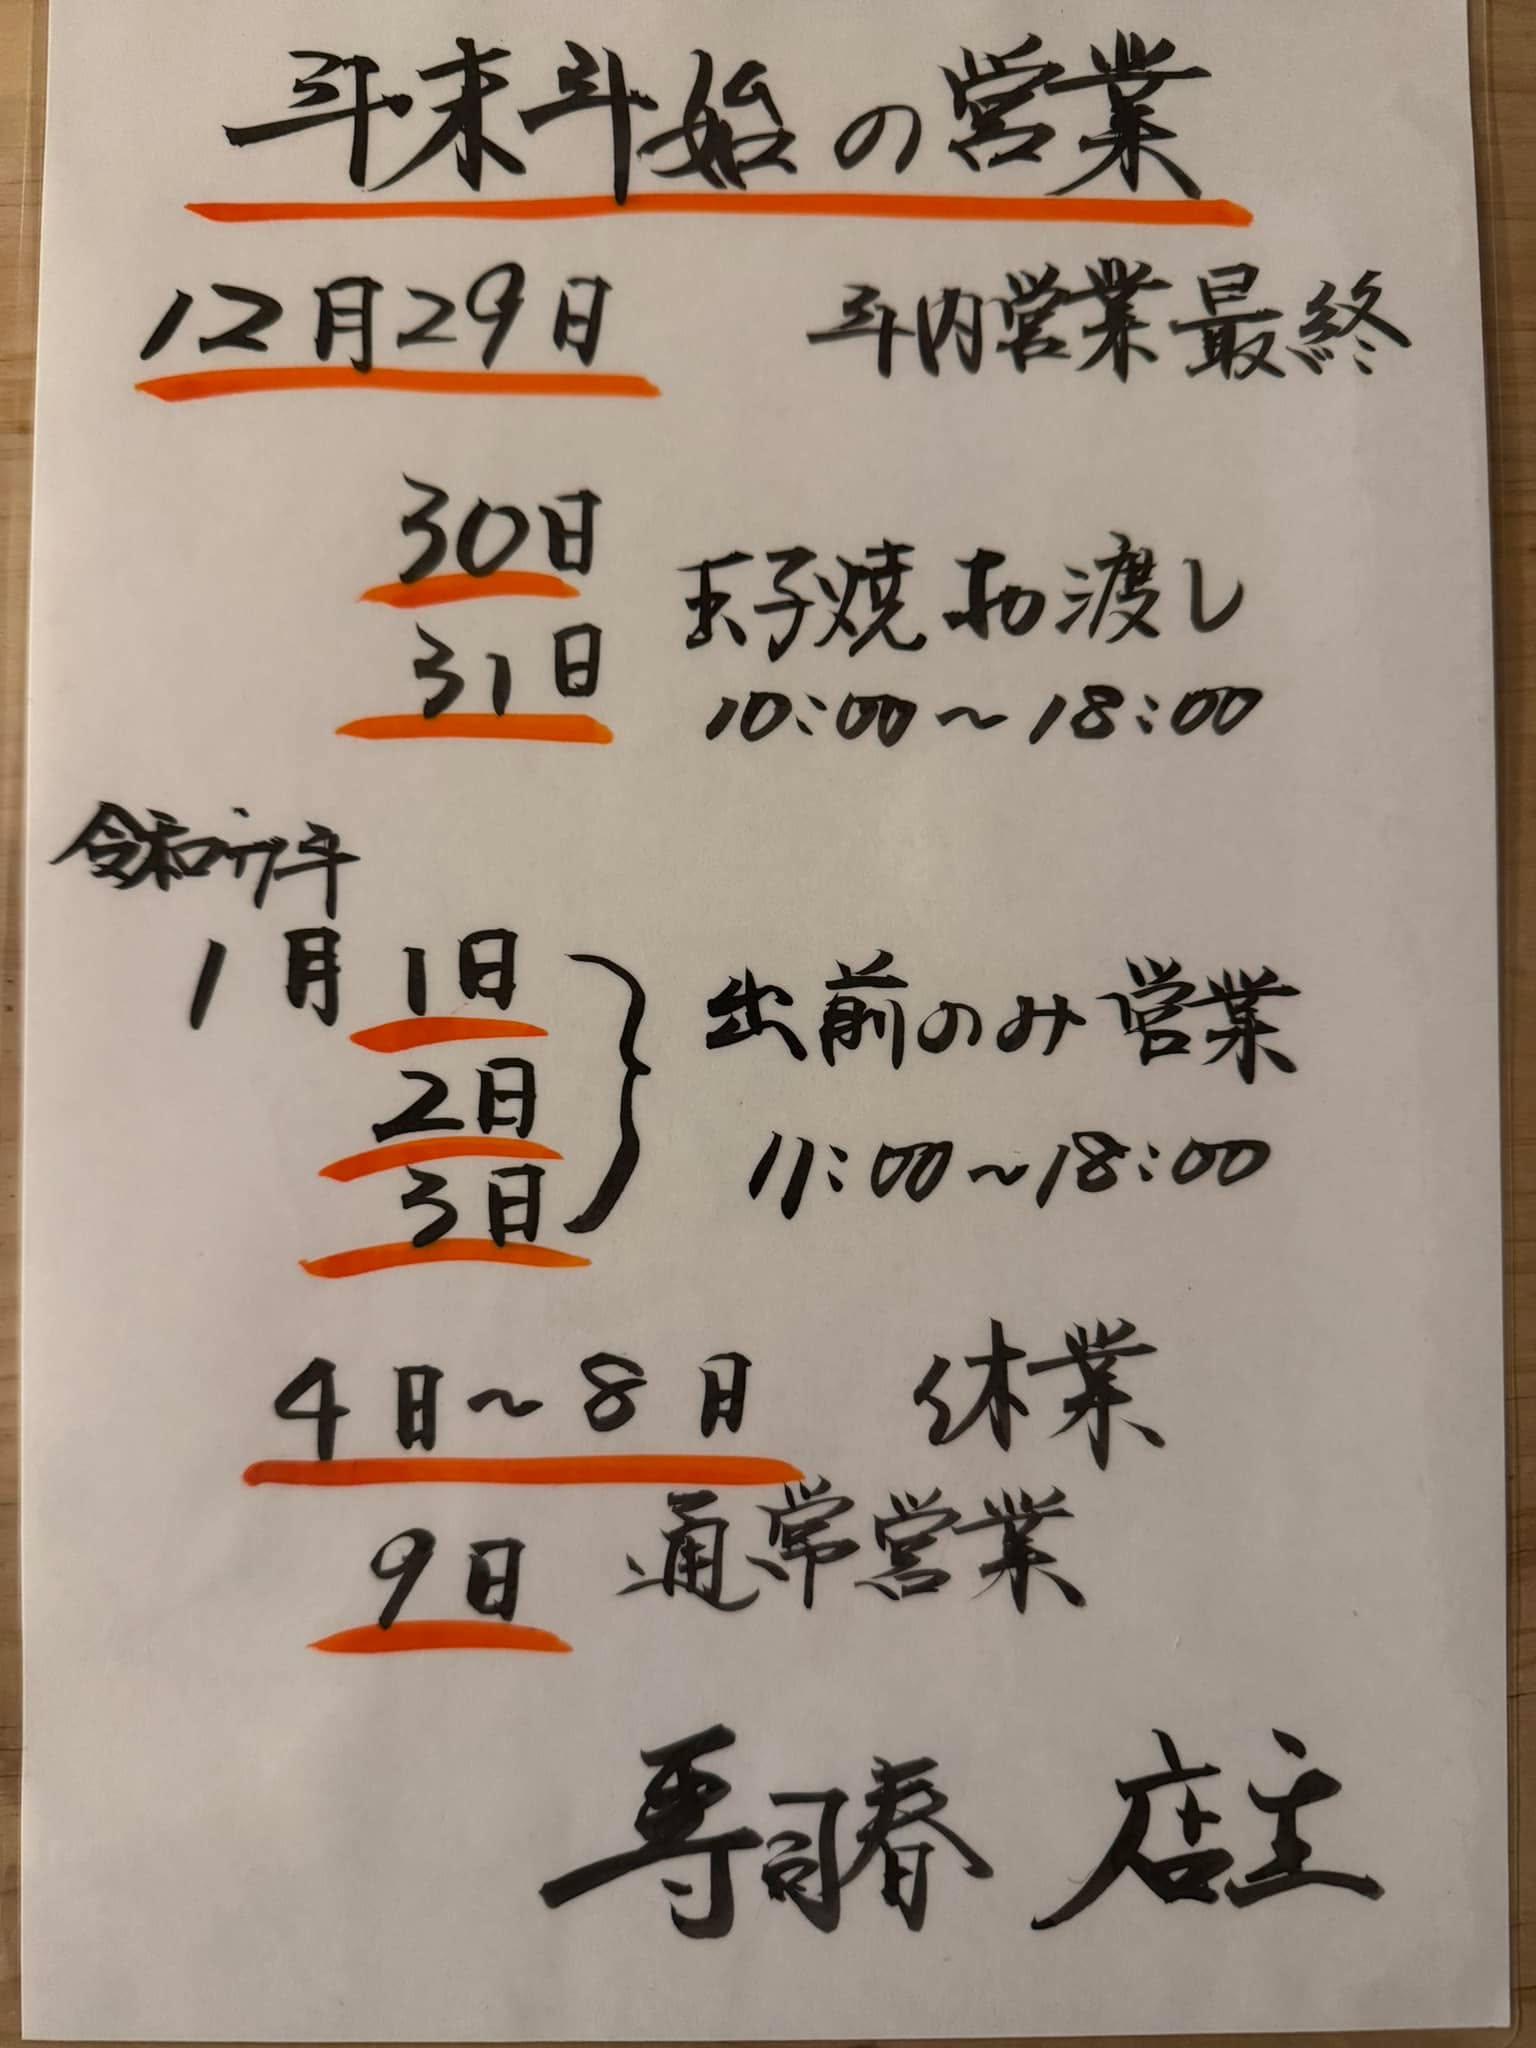 年末年始の営業
12月29日 年内営業最終
30日
31日
玉子焼お渡し
10:00〜18:00
令和 年
1月1日
2日
3日
出前のみ営業
11:00〜18:00
4日〜8日 休業
9日 通常営業
寿司春 店主